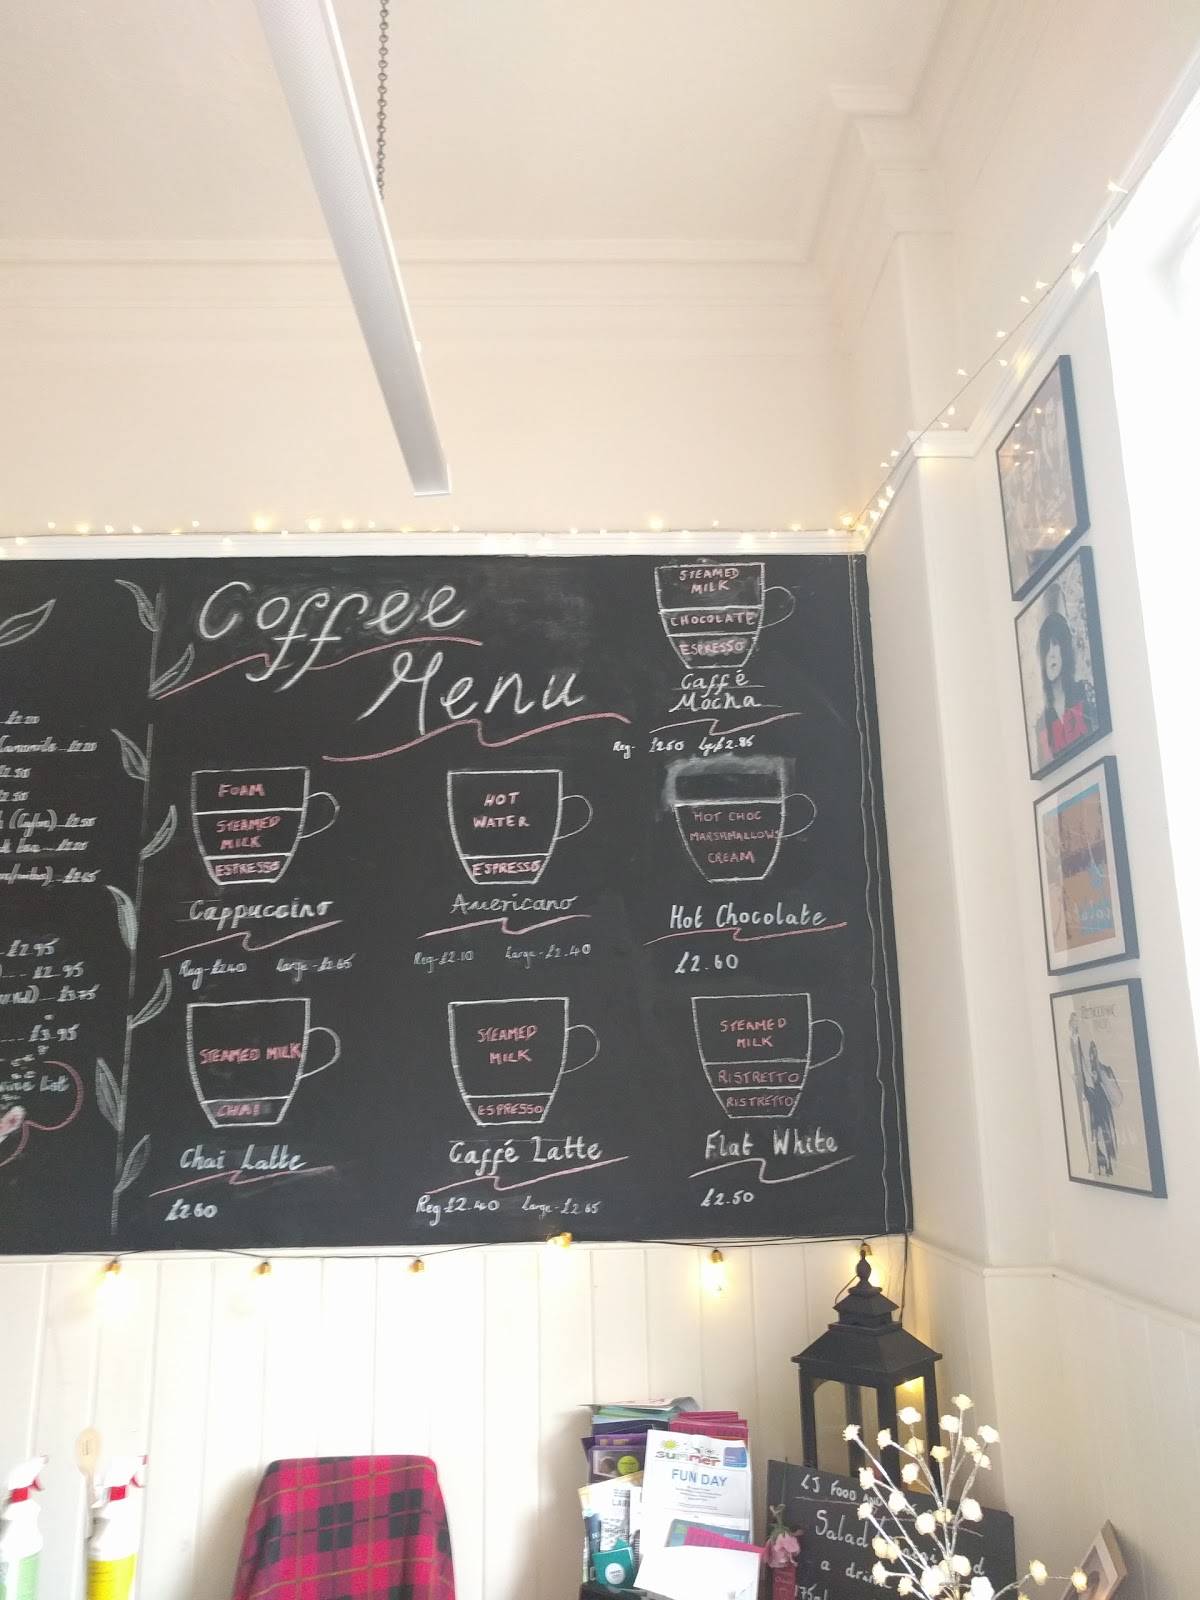 Coffee
Menu
STEAMED
MILK
CHOCOLATE
ESPRESSO
Caffé
Mocha
Reg- £2.50 Lge £2.85
FOAM
STEAMED
MILK
ESPRESSO
Cappuccino
Reg-£2.40 Large-£2.65
HOT
WATER
ESPRESSO
Americano
Reg-£2.10 Large-£2.40
HOT CHOC
MARSHMALLOWS
CREAM
Hot Chocolate
£2.60
STEAMED MILK
CHAI
Chai Latte
£2.60
STEAMED
MILK
ESPRESSO
Caffé Latte
Reg-£2.40 Large-£2.65
STEAMED
MILK
RISTRETTO
RISTRETTO
Flat White
£2.50
£2.95
£2.95
£3.75
£3.95
list
REX
summer
FUN DAY
LJ FOOD AND
Salad
a drink
175ml